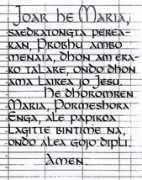 Joar he Maria,
saedkatongta perea-
kan, Probhu ambo
menaia, dhon am era-
ko talare, ondo dhon
ama laikea jo Jesu.
He dhoromren
Maria, Pormeshora
Enga, ale papikoa
lagitte bintime na,
ondo alea gojo dipli.
Amen.